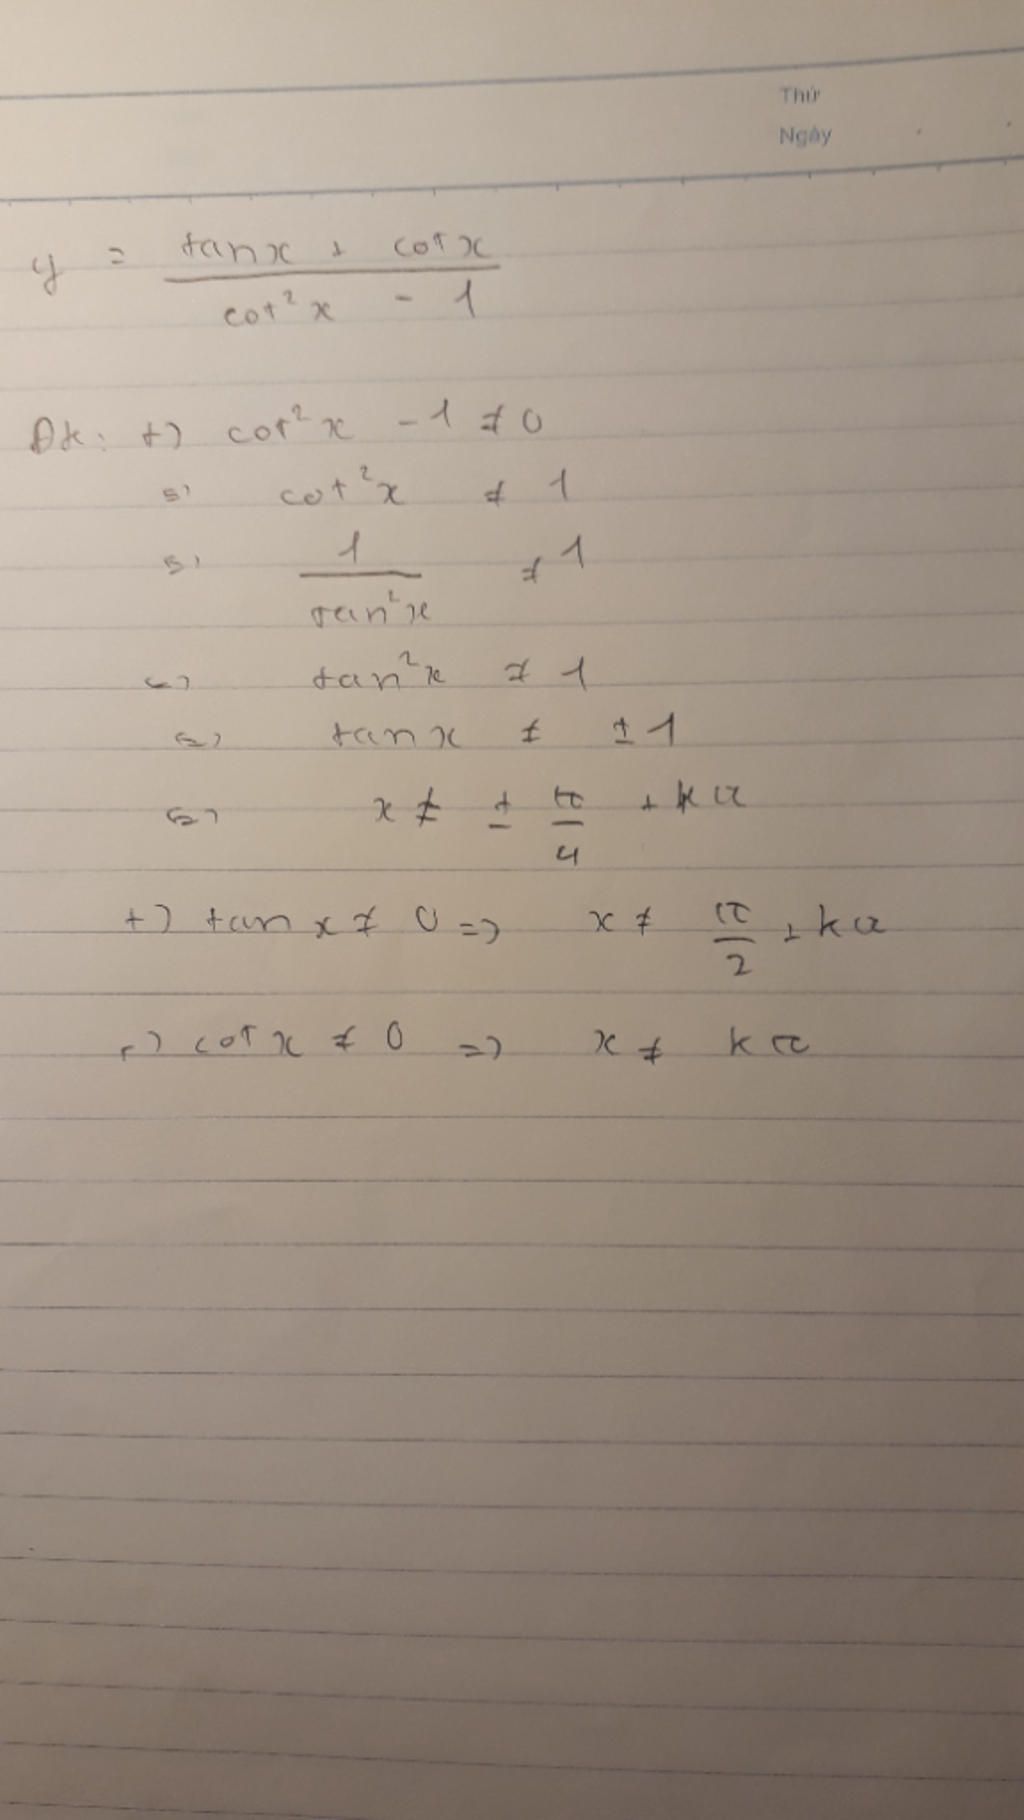 Thứ
Ngày
y = (tan x + cot x) / (cot² x - 1)
ĐK: +) cot² x - 1 ≠ 0
<=> cot² x ≠ 1
<=> 1 / tan² x ≠ 1
<=> tan² x ≠ 1
<=> tan x ≠ ± 1
<=> x ≠ ± π/4 + kπ
+) tan x ≠ 0 => x ≠ π/2 + kπ
+) cot x ≠ 0 => x ≠ kπ